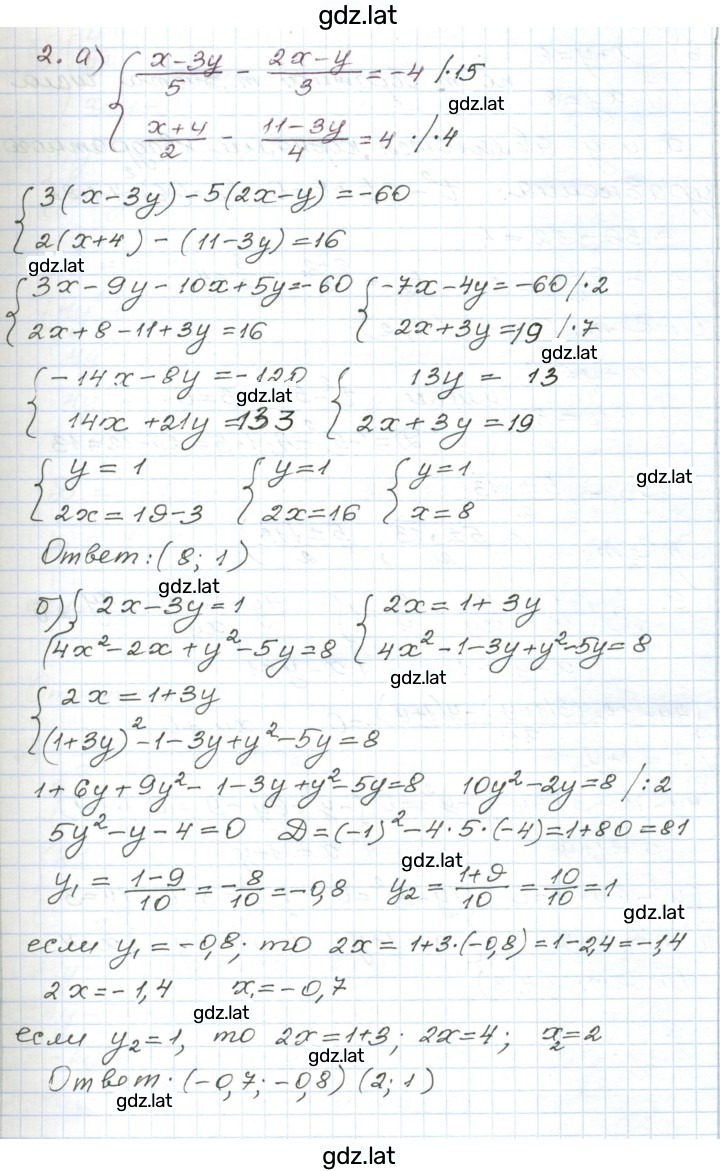 gdz.lat
2. а) { (x-3y)/5 - (2x-y)/3 = -4 /·15
gdz.lat
(x+4)/2 - (11-3y)/4 = 4 ·/·4
{ 3(x-3y) - 5(2x-y) = -60
2(x+4) - (11-3y) = 16
gdz.lat
{ 3x - 9y - 10x + 5y = -60 { -7x - 4y = -60 /·2
2x + 8 - 11 + 3y = 16 2x + 3y = 19 /·7
gdz.lat
{ -14x - 8y = -120 { 13y = 13
gdz.lat
14x + 21y = 133 2x + 3y = 19
{ y = 1 { y = 1 { y = 1
gdz.lat
2x = 19-3 2x = 16 x = 8
Ответ: (8; 1)
gdz.lat
б) { 2x - 3y = 1 { 2x = 1 + 3y
4x² - 2x + y² - 5y = 8 4x² - 1 - 3y + y² - 5y = 8
gdz.lat
{ 2x = 1 + 3y
(1+3y)² - 1 - 3y + y² - 5y = 8
1 + 6y + 9y² - 1 - 3y + y² - 5y = 8 10y² - 2y = 8 /:2
5y² - y - 4 = 0 D = (-1)² - 4·5·(-4) = 1 + 80 = 81
gdz.lat
y₁ = (1-9)/10 = -8/10 = -0,8 y₂ = (1+9)/10 = 10/10 = 1
gdz.lat
если y₁ = -0,8; то 2x = 1+3·(-0,8) = 1-2,4 = -1,4
2x = -1,4 x₁ = -0,7
gdz.lat
если y₂ = 1, то 2x = 1+3; 2x = 4; x₂ = 2
gdz.lat
Ответ: (-0,7; -0,8) (2; 1)
gdz.lat
gdz.lat